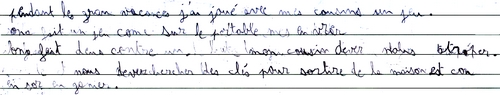 pendant les gran vacances j'ai joué avec mes cousins un jeu.
ona fait un jeu come sur le portable mes en vrér
fait deus contre un. mon cousin dever nous atraper.
nous deverchercher des clés pour sortire de la maison est con
en sor en gane..